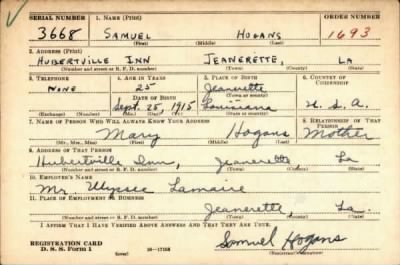 SERIAL NUMBER 1. NAME (Print) ORDER NUMBER
3668 SAMUEL HOGANS 1693
(First) (Middle) (Last)
2. ADDRESS (Print)
HUBERTVILLE INN JEANERETTE, LA
(Number and street or R. F. D. number) (Town) (County) (State)
3. TELEPHONE 4. AGE IN YEARS 5. PLACE OF BIRTH 6. COUNTRY OF CITIZENSHIP
NONE 25 Jeanerette
DATE OF BIRTH (Town or county)
Sept. 25, 1915 Louisiana U.S.A.
(Exchange) (Number) (Mo.) (Day) (Yr.) (State or country)
7. NAME OF PERSON WHO WILL ALWAYS KNOW YOUR ADDRESS 8. RELATIONSHIP OF THAT PERSON
Mary Hogans Mother
(Mr., Mrs., Miss) (First) (Middle) (Last)
9. ADDRESS OF THAT PERSON
Hubertville Inn, Jeanerette, La
(Number and street or R. F. D. number) (Town) (County) (State)
10. EMPLOYER'S NAME
Mr. Ulysse Lamaire
11. PLACE OF EMPLOYMENT OR BUSINESS
Jeanerette, La.
(Number and street or R. F. D. number) (Town) (County) (State)
I AFFIRM THAT I HAVE VERIFIED ABOVE ANSWERS AND THAT THEY ARE TRUE.
REGISTRATION CARD
D. S. S. Form 1 (over) Samuel Hogans